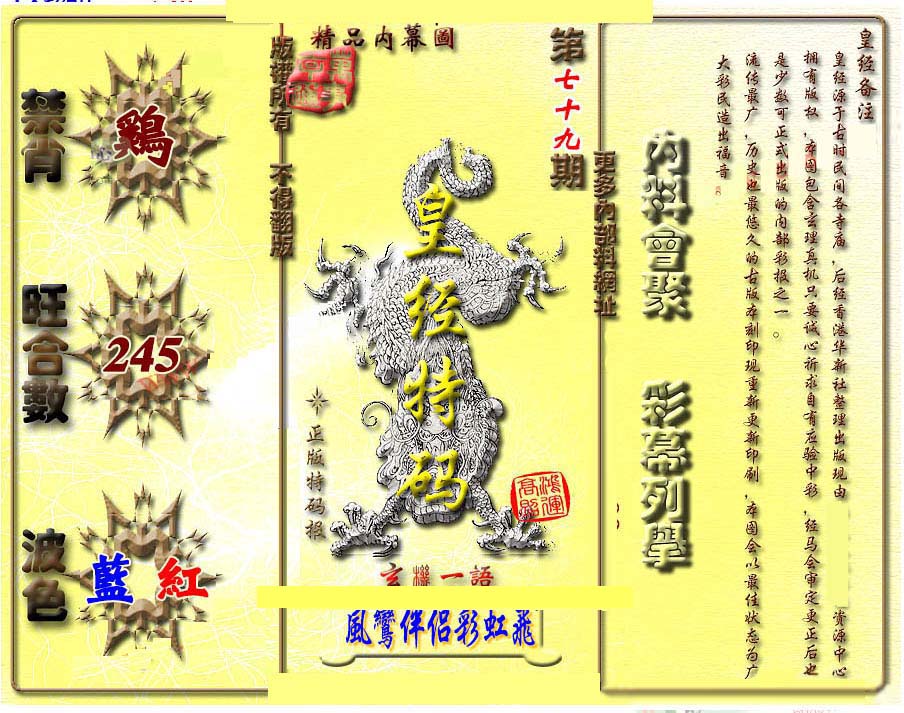 精品内幕圖
第七十九期
版權所有 不得翻版
更多內部料網址
禁肖
鷄
旺合數
245
波色
藍 紅
皇经特码
正版特码报
鴻運高照
玄機一語
風鸞伴侣彩虹飛
内料會聚
彩幕列學
皇经备注
皇经源于古时民间各寺庙，后经香港华新社整理出版现由 资源中心
拥有版权，本图包含玄理真机只要诚心祈求自有应验中彩，经马会审定更正后也
是少数可正式出版的内部彩报之一。
流传最广，历史也最悠久的古版本刻印现重新更新印刷，本图会以最佳状态为广
大彩民造出福音